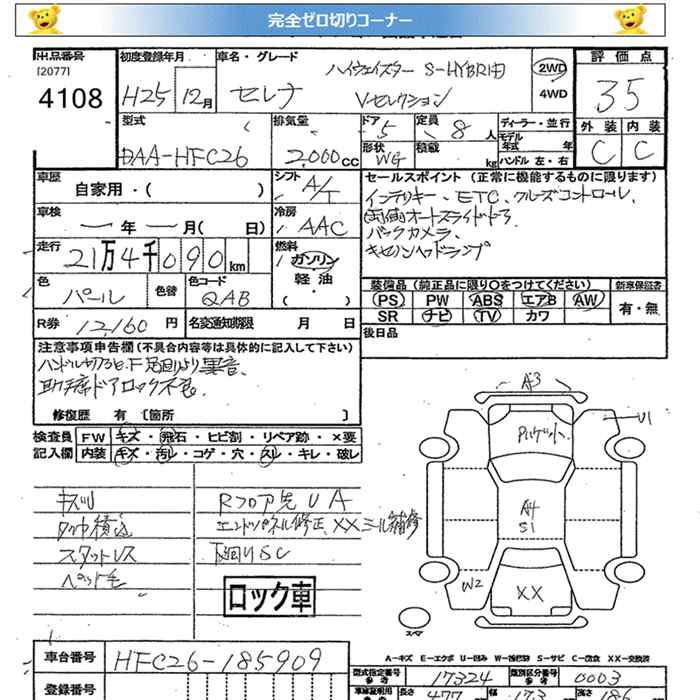 完全ゼロ切りコーナー
出品番号 初度登録年月 車名・グレード 評価点
[2077]
4108
H25 12月 セレナ ハイウェイスター S-HYBRID
Vセレクション
2WD
4WD
35
外装 内装
C C
型式 排気量 ドア 定員 ディーラー・並行
DAA-HFC26 2,000cc 5 8人 モデル年式 年
形状 積載 kg ハンドル 左・右
WG
車歴 自家用・( ) シフト A/T
セールスポイント (正常に機能するものに限ります)
インテリキー、ETC、クルーズコントロール、
両側オートスライドドア
バックカメラ、
キセノンヘッドランプ
車検 ー年ー月( 日) 冷房 AAC
走行 21万4千090km 燃料 ガソリン
軽油
( )
色 パール 色替 色コード QAB
装備品 (前正品に限り○をつけてください) 新車保証書
PS PW ABS エアB AW 有・無
SR ナビ TV カワ
R券 12,160円 名変通知期限 月 日
後日品
注意事項申告欄 (不具合内容等は具体的に記入して下さい)
ハンドル切る時、F足回りより異音、
助手席ドアロック不良
修復歴 有 〔箇所 〕
検査員 FW キズ・飛石・ヒビ割・リペア跡・×要
記入欄 内装 キズ・汚レ・コゲ・穴・スレ・キレ・破レ
A3
U1
A4
S1
W2
XX
スペア
Rフロア先UA
エンドパネル修正、XX
下廻りSC
スタットレス
ロック車
A-キズ E-エクボ U-凹み W-波巴跡 S-サビ C-腐食 XX-交換済
車台番号 HFC26-185909
型式指定番号 参考 17324 類別区分番号 参考 0003
登録番号
車庫証明用 参考 長さ 477 幅 173 高さ 185